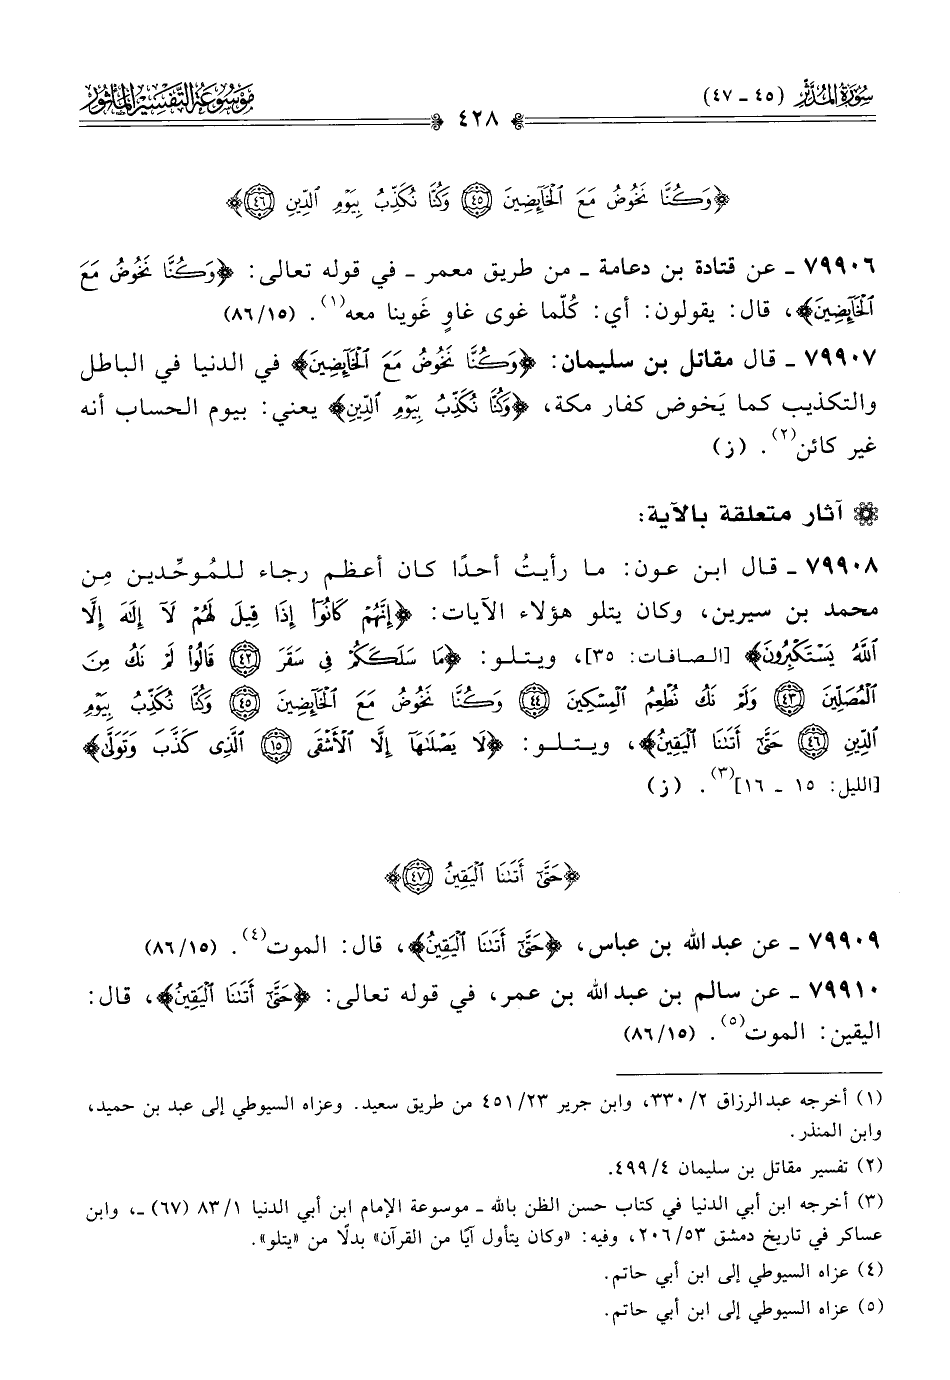 سورة المدثر (٤٥ ـ ٤٧)
موسوعة التفسير المأثور
٤٢٨
﴿وَكُنَّا نَخُوضُ مَعَ ٱلْخَآئِضِينَ ٤٥ وَكُنَّا نُكَذِّبُ بِيَوْمِ ٱلدِّينِ ٤٦﴾
٧٩٩٠٦ ـ عن قتادة بن دعامة ـ من طريق معمر ـ في قوله تعالى: ﴿وَكُنَّا نَخُوضُ مَعَ
ٱلْخَآئِضِينَ﴾، قال: يقولون: أي: كُلّما غوى غاوٍ غَوينا معه(١). (٨٦/١٥)
٧٩٩٠٧ ـ قال مقاتل بن سليمان: ﴿وَكُنَّا نَخُوضُ مَعَ ٱلْخَآئِضِينَ﴾ في الدنيا في الباطل
والتكذيب كما يَخوض كفار مكة، ﴿وَكُنَّا نُكَذِّبُ بِيَوْمِ ٱلدِّينِ﴾ يعني: بيوم الحساب أنه
غير كائن(٢). (ز)
آثار متعلقة بالآية:
٧٩٩٠٨ ـ قال ابن عون: ما رأيتُ أحدًا كان أعظم رجاء للمُوحِّدين مِن
محمد بن سيرين، وكان يتلو هؤلاء الآيات: ﴿إِنَّهُمْ كَانُوٓا۟ إِذَا قِيلَ لَهُمْ لَآ إِلَٰهَ إِلَّا
ٱللَّهُ يَسْتَكْبِرُونَ﴾ [الصافات: ٣٥]، ويتلو: ﴿مَا سَلَكَكُمْ فِى سَقَرَ ٤٢ قَالُوا۟ لَمْ نَكُ مِنَ
ٱلْمُصَلِّينَ ٤٣ وَلَمْ نَكُ نُطْعِمُ ٱلْمِسْكِينَ ٤٤ وَكُنَّا نَخُوضُ مَعَ ٱلْخَآئِضِينَ ٤٥ وَكُنَّا نُكَذِّبُ بِيَوْمِ
ٱلدِّينِ ٤٦ حَتَّىٰٓ أَتَىٰنَا ٱلْيَقِينُ﴾، ويتلو: ﴿لَا يَصْلَىٰهَآ إِلَّا ٱلْأَشْقَى ١٥ ٱلَّذِى كَذَّبَ وَتَوَلَّىٰ﴾
[الليل: ١٥ ـ ١٦](٣). (ز)
﴿حَتَّىٰٓ أَتَىٰنَا ٱلْيَقِينُ ٤٧﴾
٧٩٩٠٩ ـ عن عبد الله بن عباس، ﴿حَتَّىٰٓ أَتَىٰنَا ٱلْيَقِينُ﴾، قال: الموت(٤). (٨٦/١٥)
٧٩٩١٠ ـ عن سالم بن عبد الله بن عمر، في قوله تعالى: ﴿حَتَّىٰٓ أَتَىٰنَا ٱلْيَقِينُ﴾، قال:
اليقين: الموت(٥). (٨٦/١٥)
(١) أخرجه عبد الرزاق ٢/ ٣٣٠، وابن جرير ٢٣/ ٤٥١ من طريق سعيد. وعزاه السيوطي إلى عبد بن حميد،
وابن المنذر.
(٢) تفسير مقاتل بن سليمان ٤/ ٤٩٩.
(٣) أخرجه ابن أبي الدنيا في كتاب حسن الظن بالله ـ موسوعة الإمام ابن أبي الدنيا ١/ ٨٣ (٦٧) ـ، وابن
عساكر في تاريخ دمشق ٥٣/ ٢٠٦، وفيه: «وكان يتأول آيًا من القرآن» بدلًا من «يتلو».
(٤) عزاه السيوطي إلى ابن أبي حاتم.
(٥) عزاه السيوطي إلى ابن أبي حاتم.